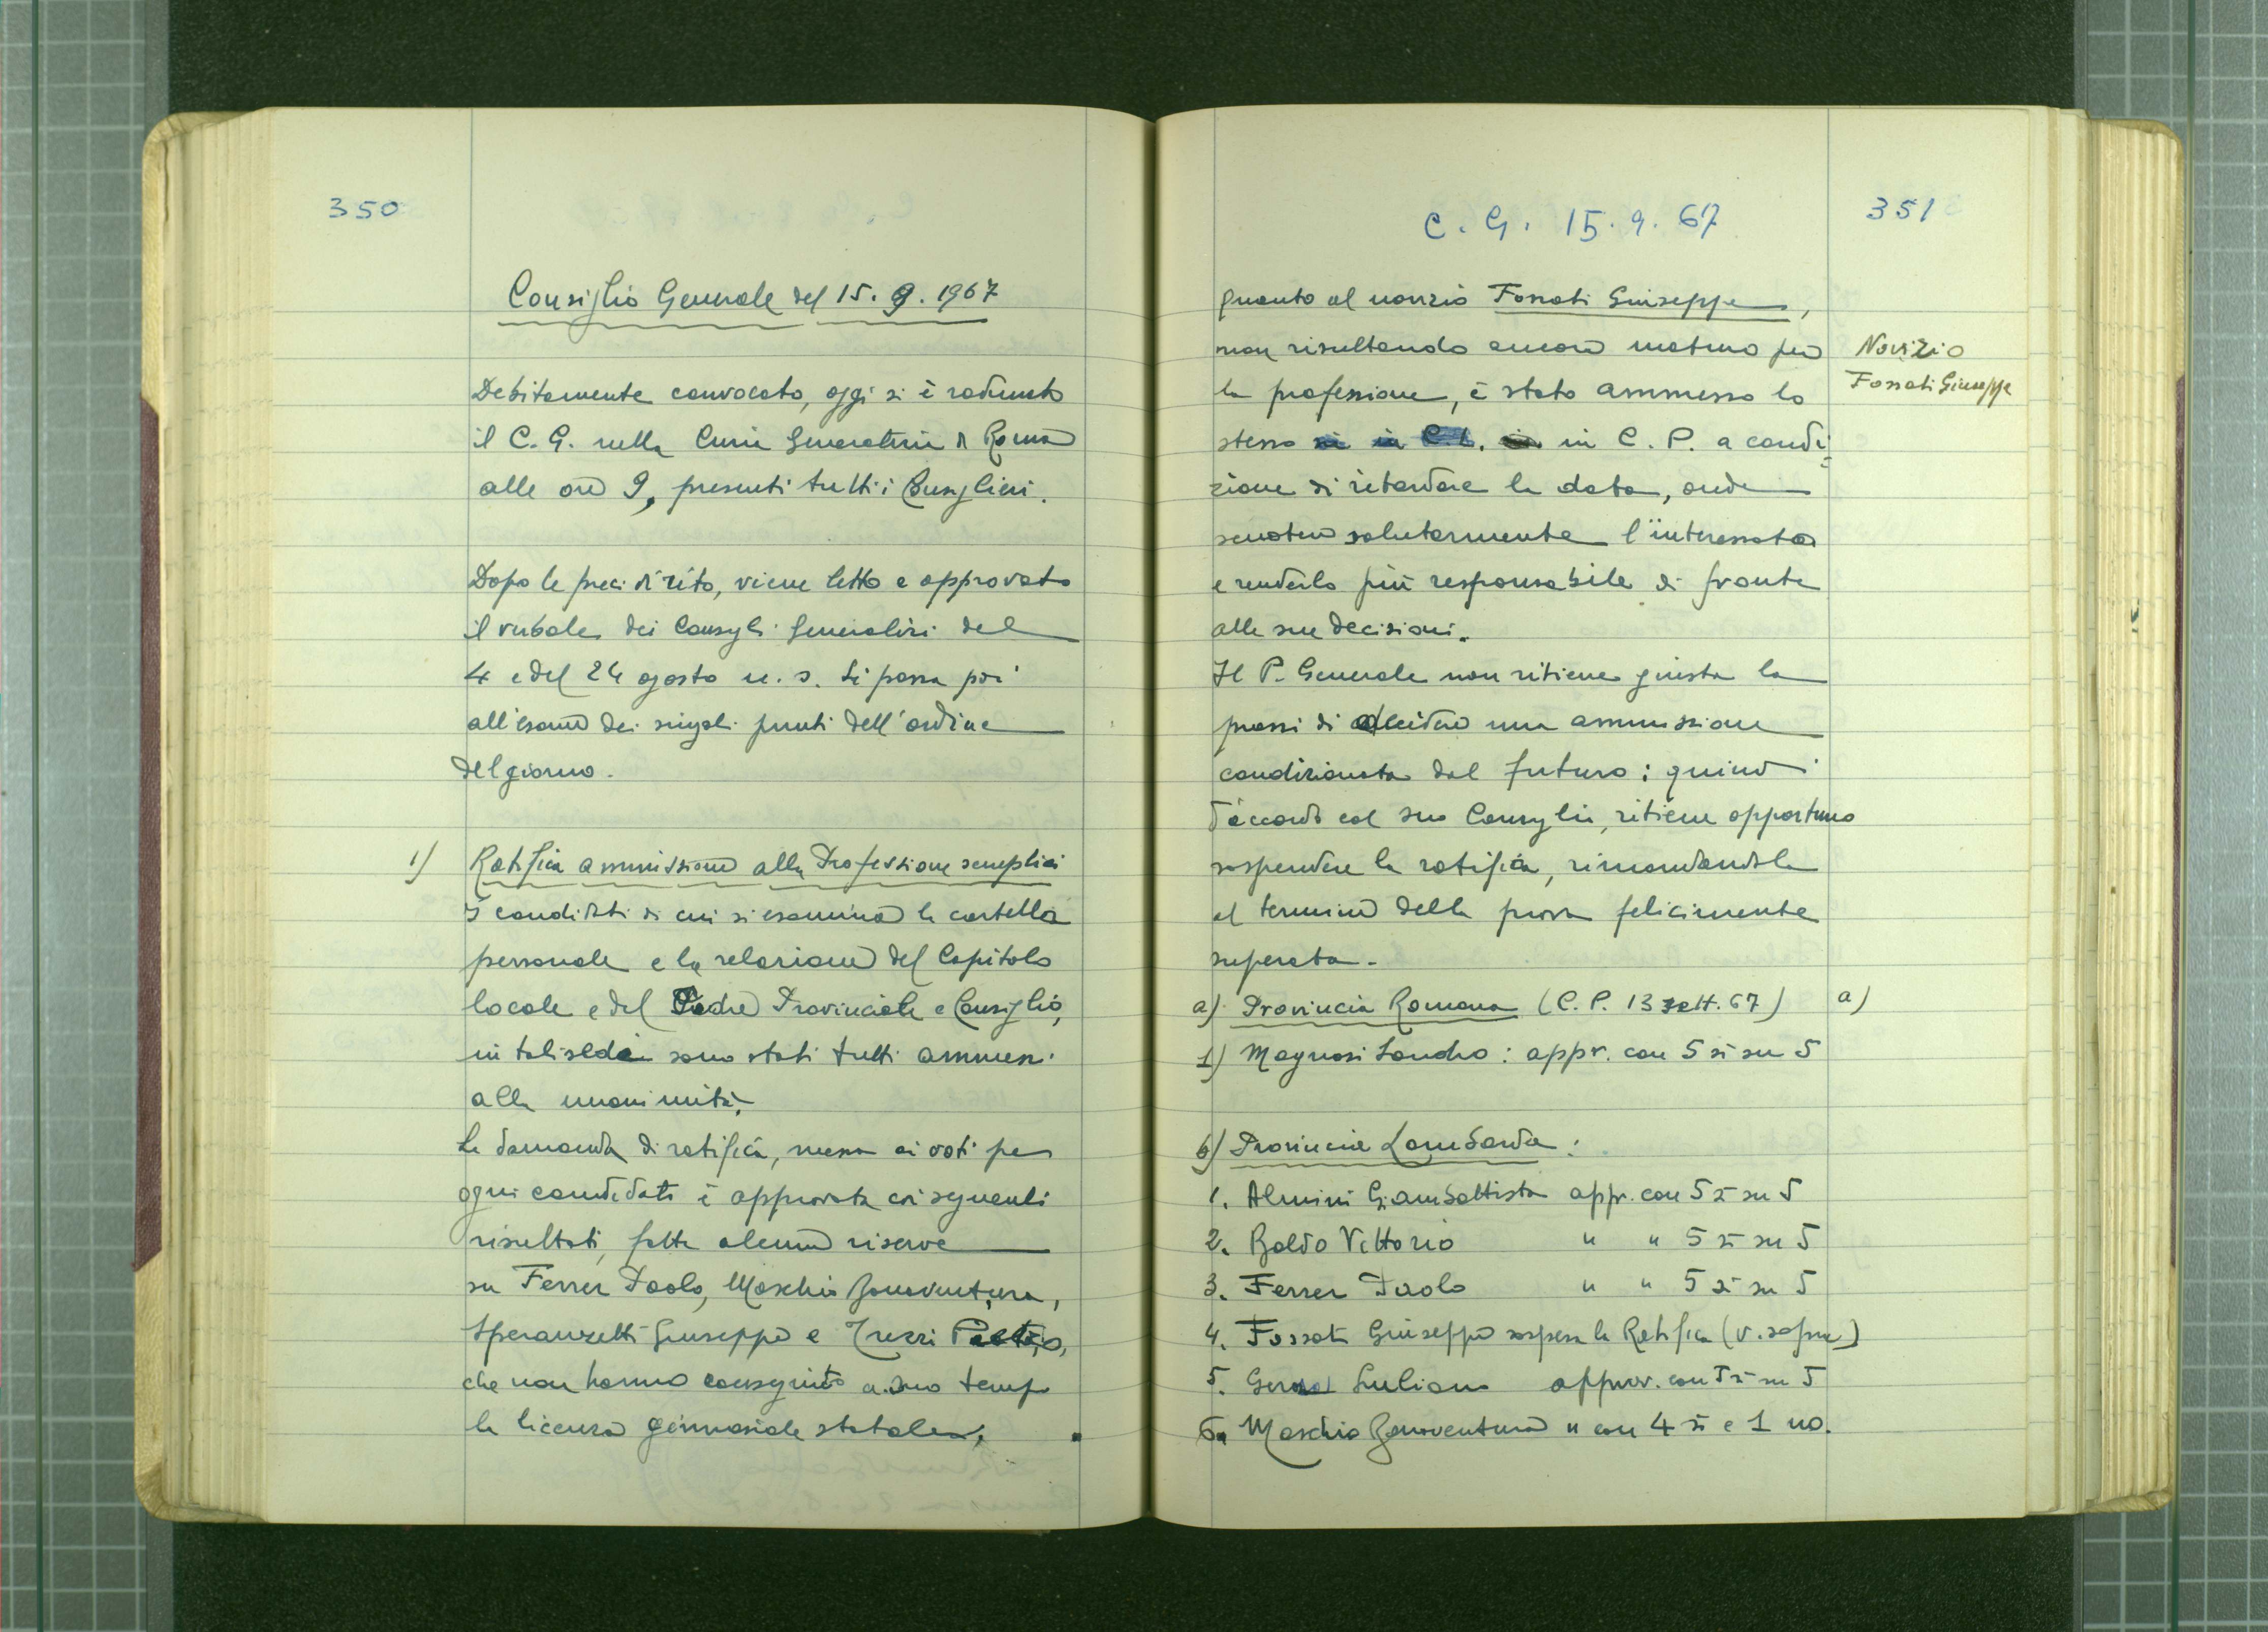 350
Consiglio Generale del 15. 9. 1967
Debitamente convocato, oggi si è radunato
il C. G. nella Curia Generalizia di Roma
alle ore 9, presenti tutti i Consiglieri.
Dopo le preci di rito, viene letto e approvato
il verbale dei Consigli Generalizi del
4 e del 24 agosto u. s. Si passa poi
all'esame dei singoli punti dell'ordine
del giorno.
1) Ratifica ammissione alla Professione semplice
I candidati di cui si esamina la cartella
personale e la relazione del Capitolo
locale e del Padre Provinciale e Consiglio,
in tali sedi sono stati tutti ammessi
alla unanimità.
La domanda di ratifica, messa ai voti per
ogni candidato è approvata coi seguenti
risultati, fatta alcuna riserva
su Ferrer Paolo, Moschio Bonaventura,
Speranzetti Giuseppe e Trezzi
che non hanno conseguito a suo tempo
la licenza ginnasiale statale.
C. G. 15. 9. 67
351
quanto al novizio Fossati Giuseppe,
non risultando ancora maturo per
la professione, è stato ammesso lo
stesso in C. P. a condi=
zione di ritardare la data, onde
scuotere salutarmente l'interessato
e renderlo più responsabile di fronte
alle sue decisioni.
Il P. Generale non ritiene giusta la
prassi di decidere una ammissione
condizionata dal futuro: quindi
d'accordo col suo Consiglio, ritiene opportuno
sospendere la ratifica, rimandandola
al termine della prova felicemente
superata.
Novizio
Fossati Giuseppe
a) Provincia Romana (C. P. 13 sett. 67)
a)
1) Magnosi Sandro: appr. con 5 sì su 5
b) Provincia Lombarda:
1. Almini Giambattista appr. con 5 sì su 5
2. Boldo Vittorio " " 5 sì su 5
3. Ferrer Paolo " " 5 sì su 5
4. Fossati Giuseppe sospesa la Ratifica (v. sopra)
5. Giuliano approv. con 5 sì su 5
6. Moschio Bonaventura " con 4 sì e 1 no.